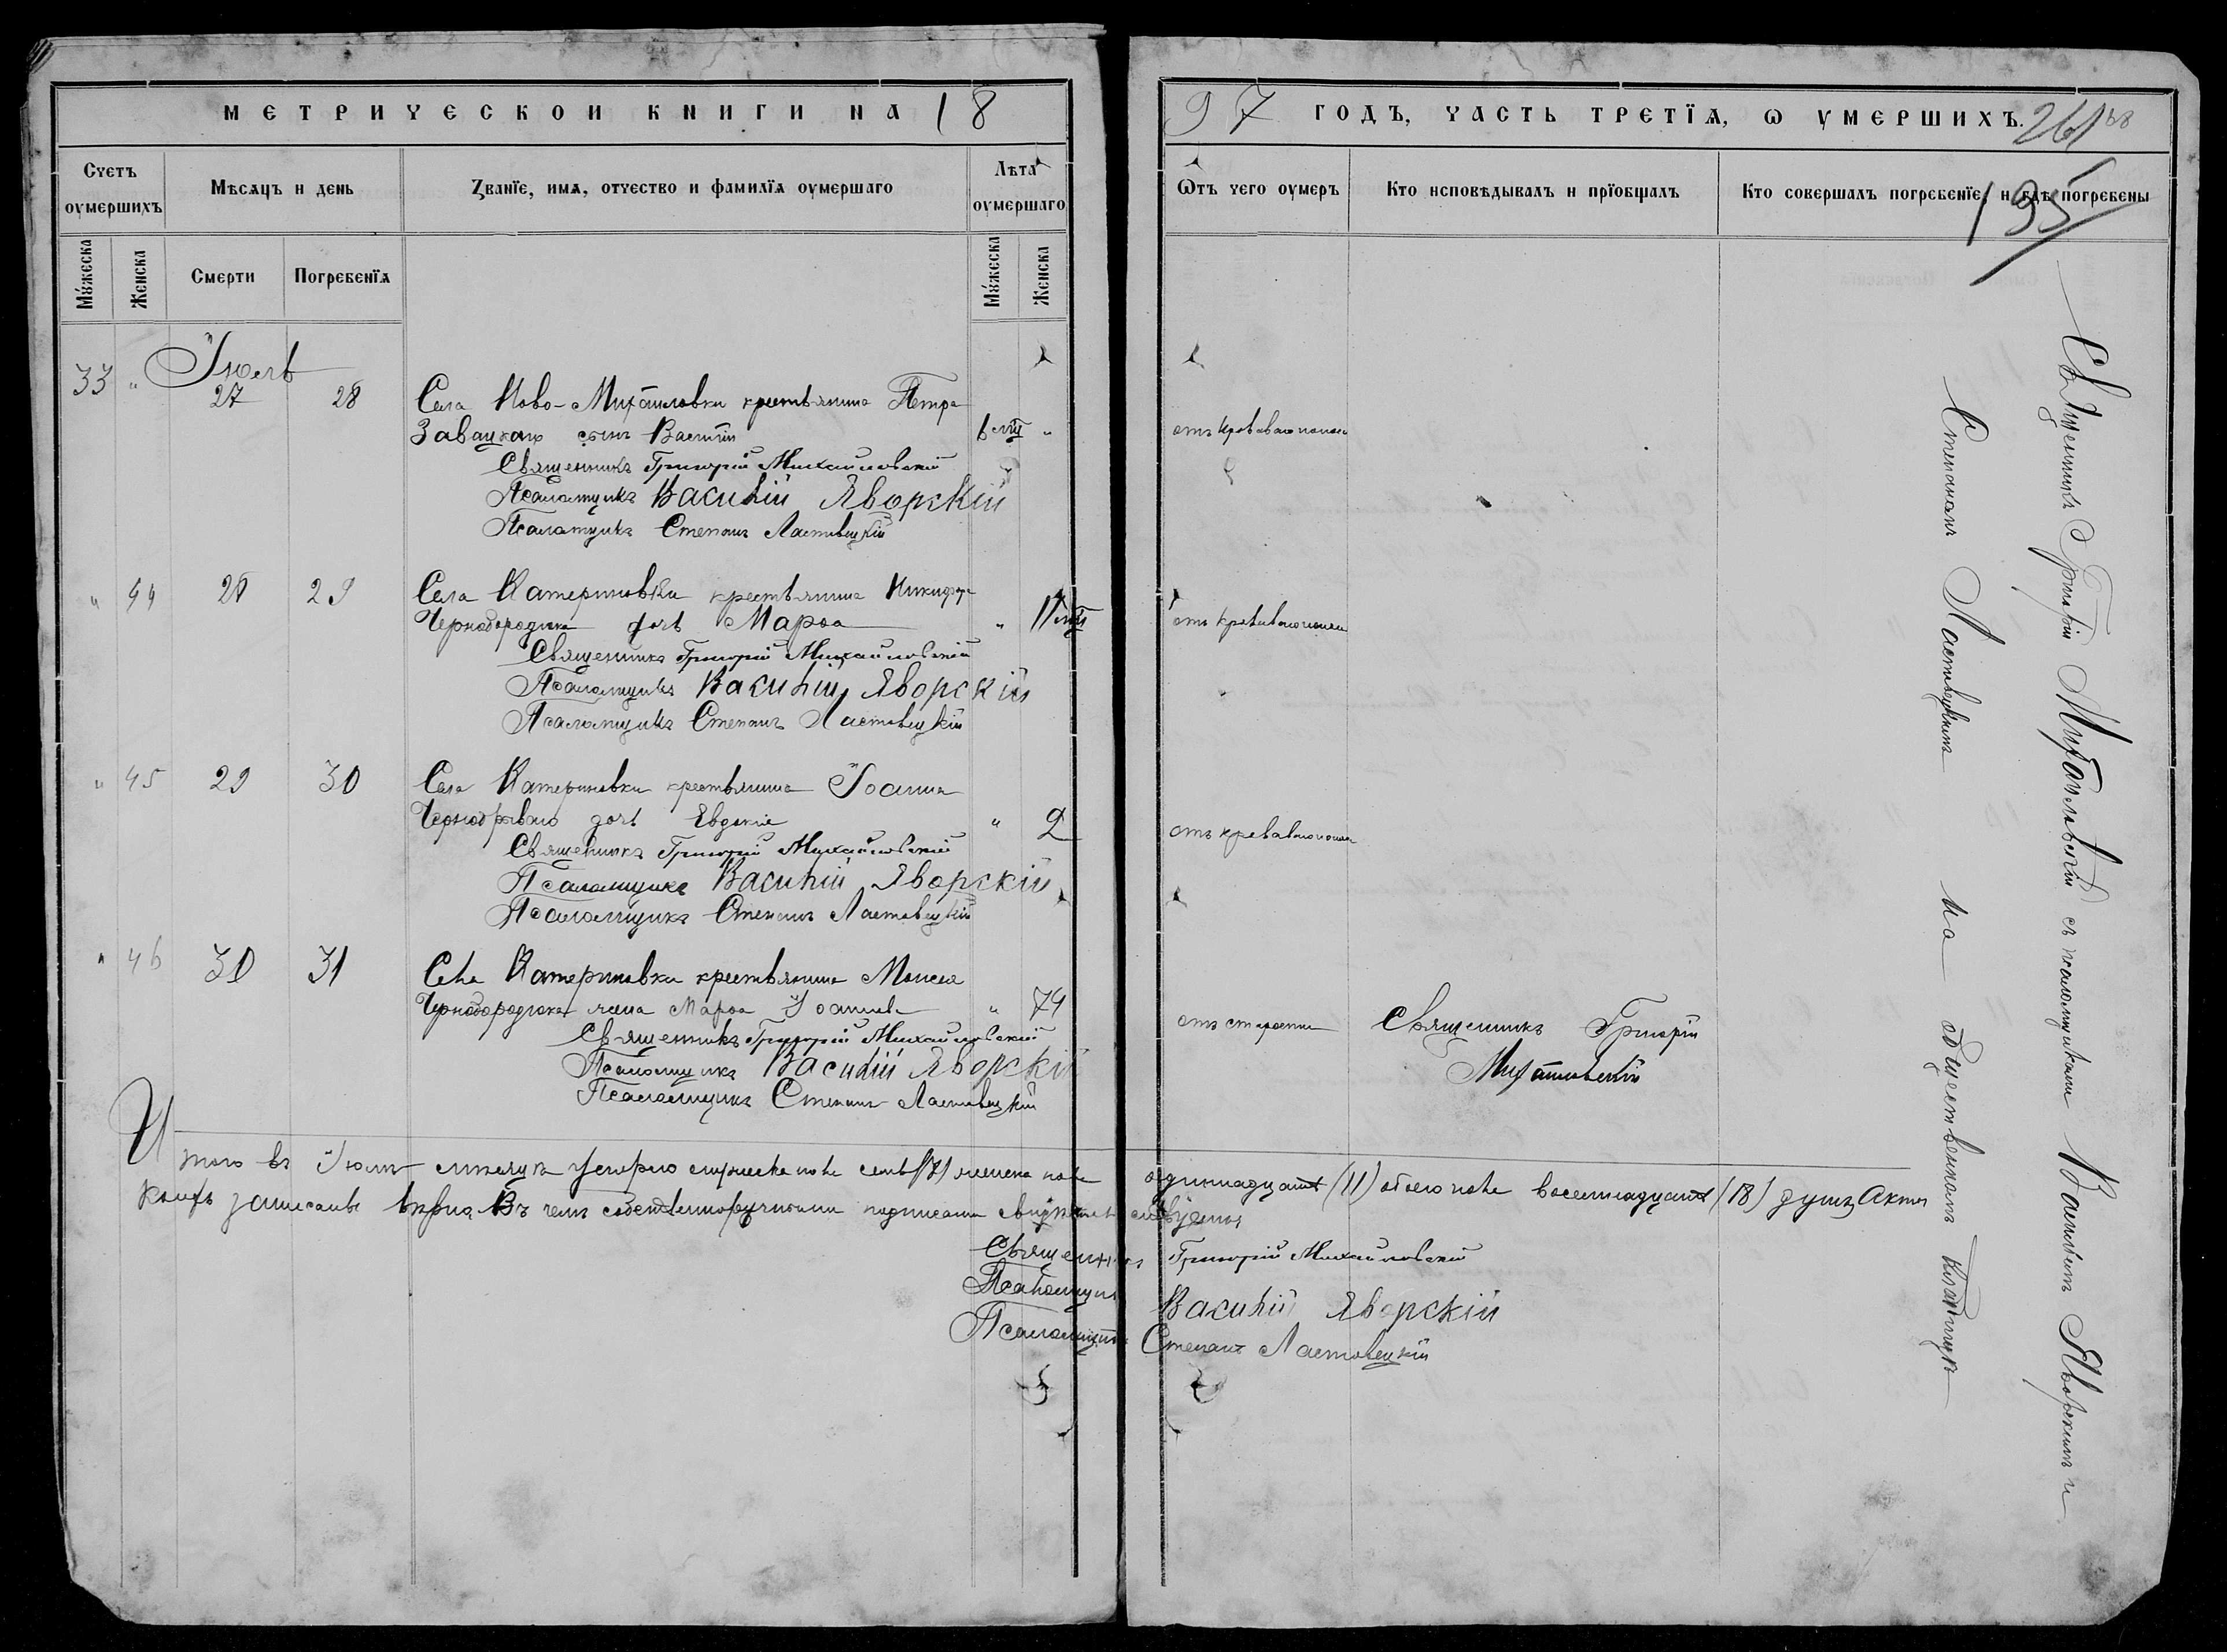 МЕТРИЧЕСКОЙ КНИГИ НА 18
97 ГОДЪ, ЧАСТЬ ТРЕТЇѦ, Ѡ УМЕРШИХЪ. 261
195
Счетъ оумершихъ
Мѣсяцъ и день
Званїе, имѧ, отчество и фамилїѧ оумершаго
Лѣта оумершаго
Ѿтъ чего оумеръ
Кто исповѣдывалъ и прїобщалъ
Кто совершалъ погребенїе и гдѣ погребены
Мꙋжеска
Женска
Смерти
Погребенїѧ
Мꙋжеска
Женска
Іюль
33 " 27 28 Села Ново-Михайловки крестьянина Петра
Завацкаго сынъ Василій 6 мц " отъ кроваваго поноса
Священникъ Григорій Михайловскій
Псаломщикъ Василій Яворскій
Псаломщикъ Степанъ Ластовецкій
" 44 28 29 Села Катериновки крестьянина Никифора
Чернобородюка дочь Марѳа " 11 мц отъ кроваваго поноса
Священникъ Григорій Михайловскій
Псаломщикъ Василій Яворскій
Псаломщикъ Степанъ Ластовецкій
" 45 29 30 Села Катериновки крестьянина Іоанна
дочь Евдокія " 2 отъ кроваваго поноса
Священникъ Григорій Михайловскій
Псаломщикъ Василій Яворскій
Псаломщикъ Степанъ Ластовецкій
" 46 30 31 Села Катериновки крестьянина Моисея
Чернобородюка жена Марѳа Іоаннова " 74 отъ старости Священникъ Григорій
Михайловскій
Священникъ Григорій Михайловскій
Псаломщикъ Василій Яворскій
Псаломщикъ Степанъ Ластовецкій
Итого въ Іюлѣ мѣсяцѣ умерло мужеска пола семь (7) женска пола одиннадцать (11) обоего пола восемнадцать (18) душъ Акты
коихъ записаны вѣрно. Въ чемъ собственноручными подписами свидѣтельствуемъ
Священникъ Григорій Михайловскій
Псаломщикъ Василій Яворскій
Псаломщикъ Степанъ Ластовецкій
Священникъ Григорій Михайловскій съ псаломщиками Василіемъ Яворскимъ и
Степаномъ Ластовецкимъ на общественномъ кладбищѣ